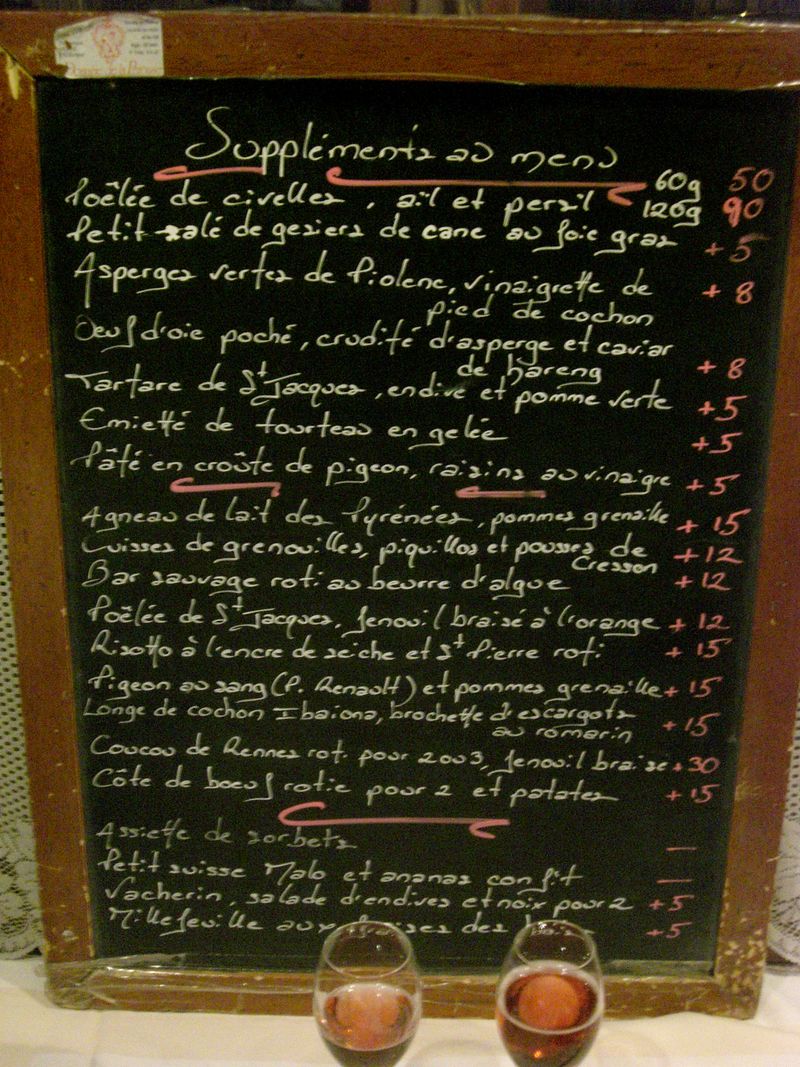 Suppléments au menu
Poêlée de civelles, ail et persil 60g 50
120g 90
Petit salé de gesiers de cane au foie gras + 5
Asperges vertes de Piolenc, vinaigrette de + 8
pied de cochon
Oeuf d'oie poché, crudité d'asperge et caviar
de hareng + 8
Tartare de St Jacques, endive et pomme verte + 5
Emietté de tourteau en gelée + 5
Pâté en croûte de pigeon, raisins au vinaigre + 5
Agneau de lait des Pyrénées, pommes grenaille + 15
Cuisses de grenouilles, piquillos et pousses de + 12
Cresson
Bar sauvage roti au beurre d'algue + 12
Poêlée de St Jacques, fenouil braisé à l'orange + 12
Risotto à l'encre de seiche et St Pierre roti + 15
Pigeon au sang (P. Renault) et pommes grenaille + 15
Longe de cochon Ibaiona, brochette d'escargots + 15
au romarin
Coucou de Rennes roti pour 2 ou 3, fenouil braisé + 30
Côte de boeuf rotie pour 2 et patates + 15
Assiette de sorbets —
Petit suisse Malo et ananas confit —
Vacherin, salade d'endives et noix pour 2 + 5
Millefeuille aux fraises des bois + 5